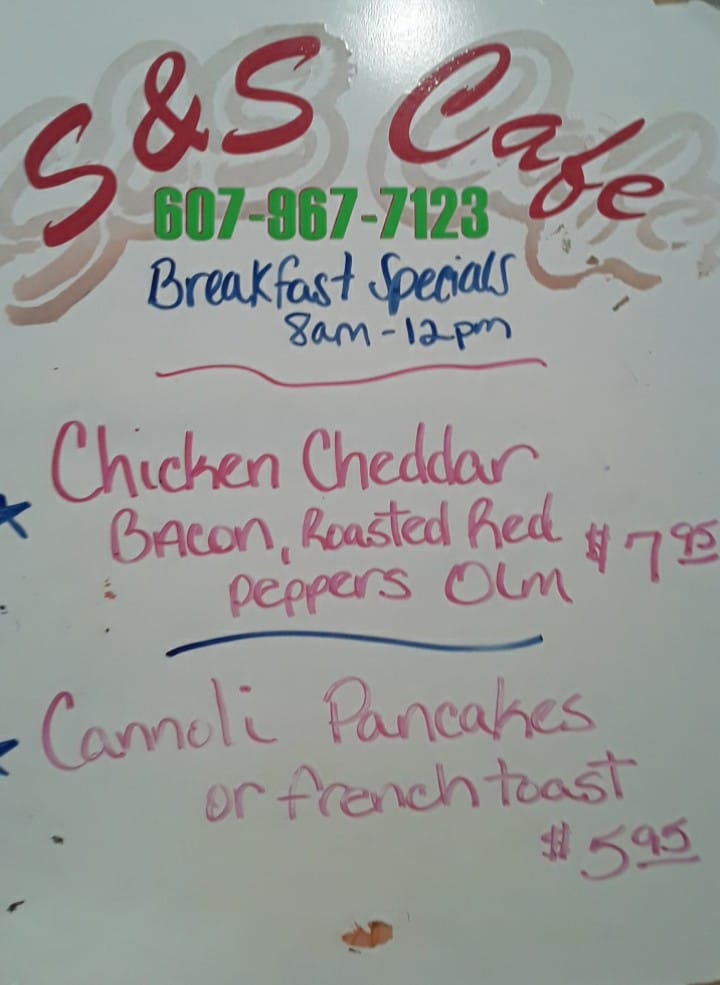 S&S Cafe
607-967-7123
Breakfast Specials
8am-12pm
Chicken Cheddar
Bacon, Roasted Red
peppers Olm $7.95
Cannoli Pancakes
or french toast
$5.95